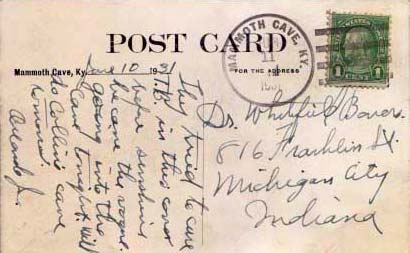 POST CARD
Mammoth Cave, Ky. June 10 1931
FOR THE ADDRESS
MAMMOTH CAVE, KY.
11
UNITED STATES POSTAGE
1 CENT 1
They tried to cure
T.B. in this cave
before sunshine
became the vogue.
Going into the
cave tonight. Will
do Collins cave
tomorrow.
Orlando J.
Dr. Whitefield Bowers
816 Franklin St.
Michigan City
Indiana